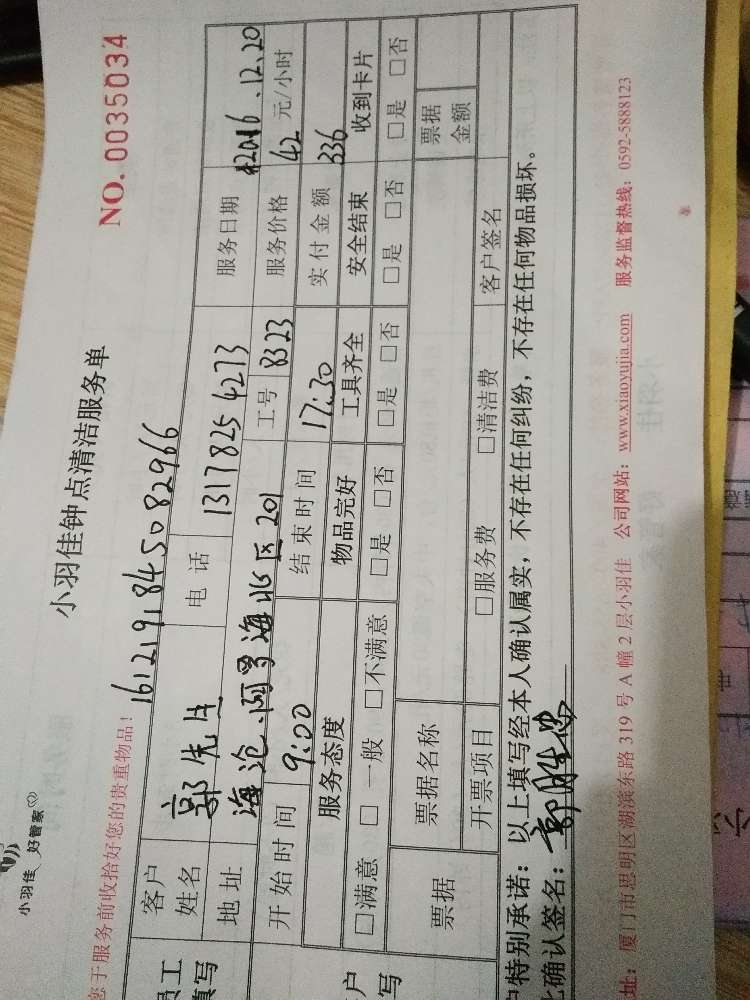 小羽佳 好管家
小羽佳钟点清洁服务单
NO. 0035034
您于服务前收拾好您的贵重物品!
161219184508 2966
客户姓名 郭先生 电话 13178254273 服务日期 2016.12.20
地址 海沧 阿罗海北区201 工号 8323 服务价格 42 元/小时
开始时间 9:00 结束时间 17:30 实付金额 336
服务态度 物品完好 工具齐全 安全结束 收到卡片
□满意 □一般 □不满意 □是 □否 □是 □否 □是 □否 □是 □否
票据 票据名称 票据金额
开票项目 □服务费 □清洁费 客户签名
户特别承诺:以上填写经本人确认属实,不存在任何纠纷,不存在任何物品损坏。
确认签名:
址:厦门市思明区湖滨东路 319 号 A 幢 2 层小羽佳 公司网站:www.xiaoyujia.com 服务监督热线:0592-5888123